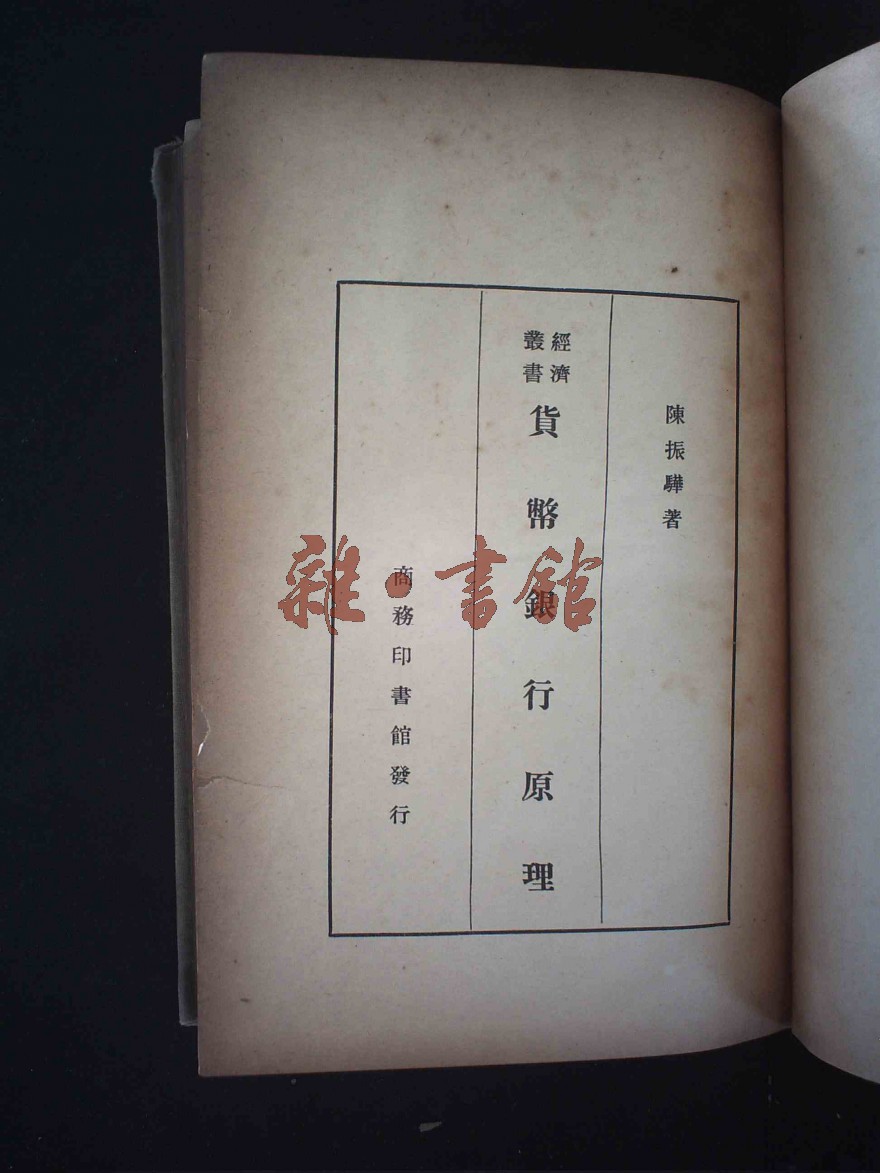 陳振驊著
經濟
叢書
貨幣銀行原理
商務印書館發行
雜·書館